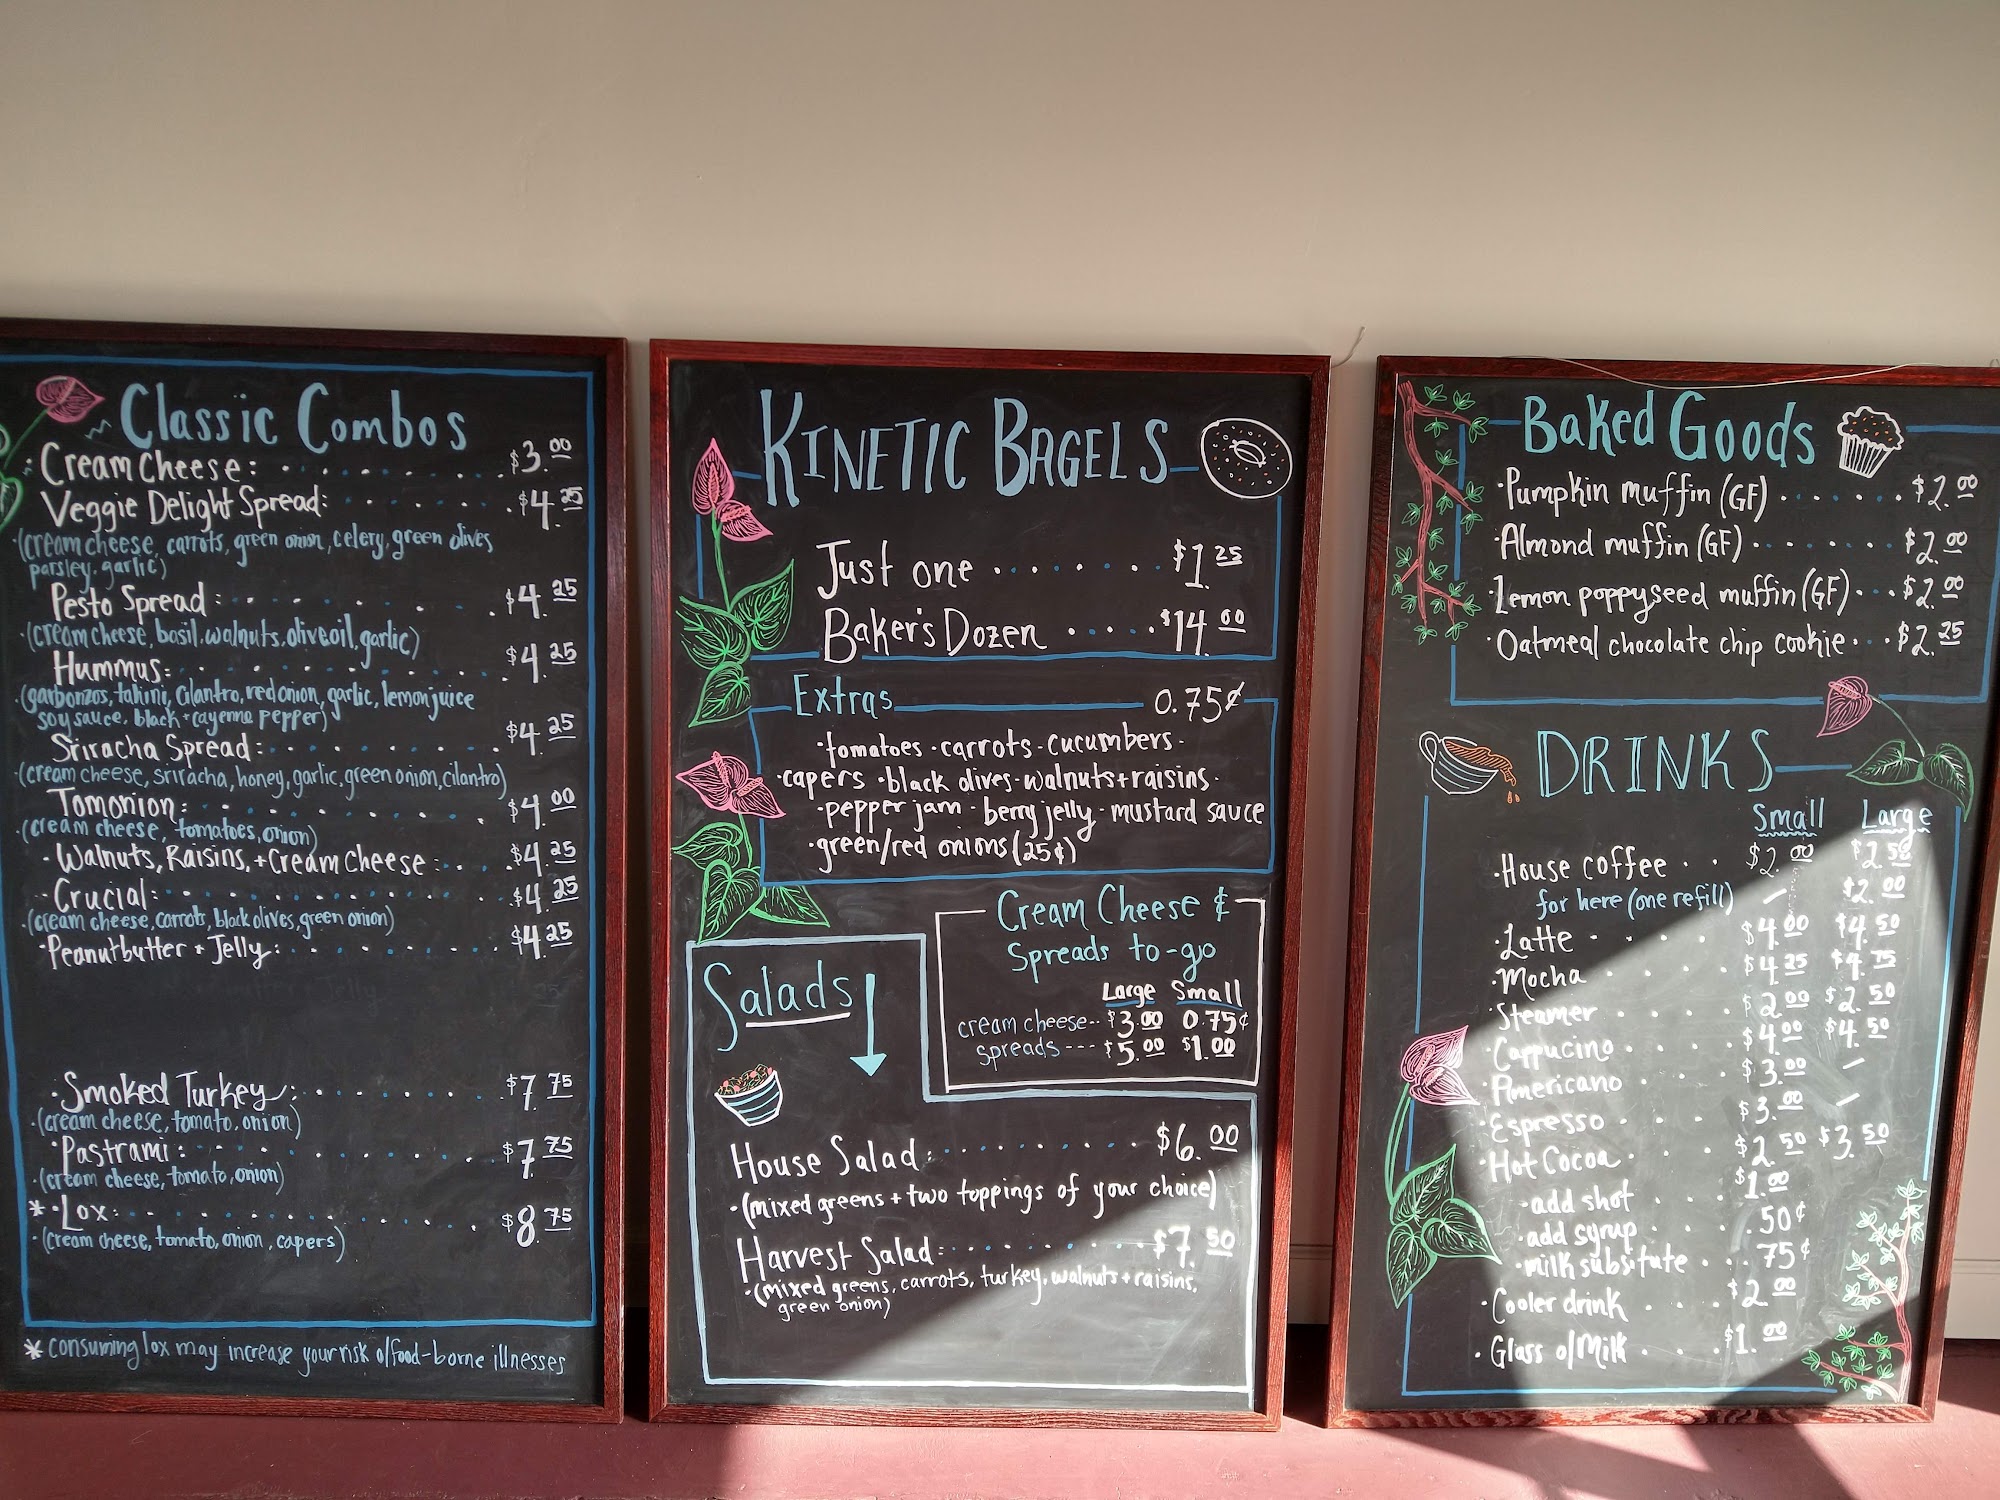 Classic Combos
· Cream Cheese: $3.00
Veggie Delight Spread: $4.25
·(cream cheese, carrots, green onion, celery, green olives
parsley, garlic)
Pesto Spread: $4.25
·(cream cheese, basil, walnuts, olive oil, garlic)
Hummus: $4.25
(garbonzos, tahini, cilantro, red onion, garlic, lemon juice
soy sauce, black + cayenne pepper)
Sriracha Spread: $4.25
·(cream cheese, sriracha, honey, garlic, green onion, cilantro)
Tomonion: $4.00
·(cream cheese, tomatoes, onion)
· Walnuts, Raisins, + Cream Cheese: $4.25
· Crucial: $4.25
(cream cheese, carrots, black olives, green onion)
· Peanutbutter + Jelly: $4.25
· Smoked Turkey: $7.75
·(cream cheese, tomato, onion)
· Pastrami: $7.75
·(cream cheese, tomato, onion)
* · Lox: $8.75
·(cream cheese, tomato, onion, capers)
* consuming lox may increase your risk o/food-borne illnesses
Kinetic Bagels
Just one $1.25
Baker's Dozen $14.00
Extras 0.75¢
· tomatoes · carrots · cucumbers ·
· capers · black olives · walnuts + raisins ·
· pepper jam · berry jelly · mustard sauce
· green/red onions (25¢)
Cream Cheese &
Spreads to-go
Large Small
cream cheese -- $3.00 0.75¢
spreads ---- $5.00 $1.00
Salads
House Salad: $6.00
·(mixed greens + two toppings of your choice)
Harvest Salad: $7.50
·(mixed greens, carrots, turkey, walnuts + raisins,
green onion)
Baked Goods
· Pumpkin muffin (GF) $2.00
· Almond muffin (GF) $2.00
· Lemon poppyseed muffin (GF) $2.00
· Oatmeal chocolate chip cookie $2.25
DRINKS
Small Large
· House coffee $2.00 $2.50
for here (one refill) – $2.00
· Latte $4.00 $4.50
· Mocha $4.25 $4.75
· Steamer $2.00 $2.50
· Cappucino $4.00 $4.50
· Americano $3.00 –
· Espresso $3.00 –
· Hot Cocoa $2.50 $3.50
· add shot $1.00
· add syrup .50¢
· milk subsitute .75¢
· Cooler drink $2.00
· Glass o/Milk $1.00